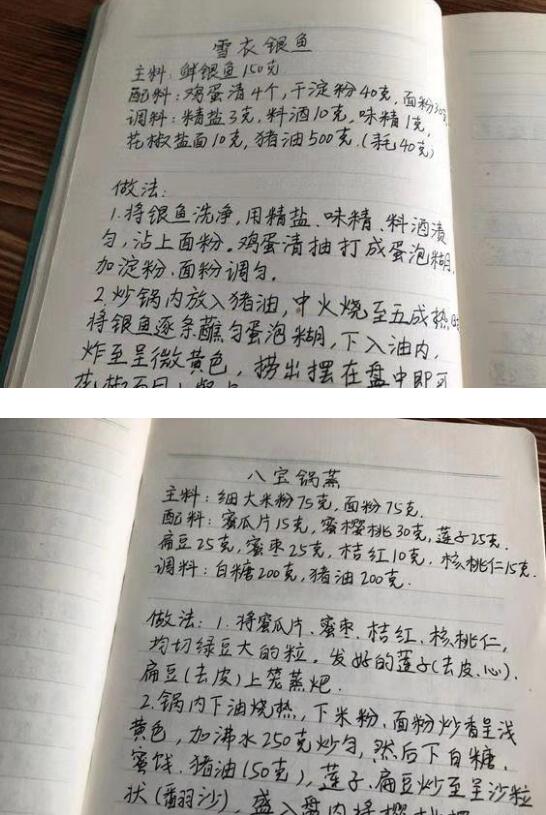 雪衣银鱼
主料:鲜银鱼150克
配料:鸡蛋清4个,干淀粉40克,面粉30克
调料:精盐3克,料酒10克,味精1克,
花椒盐面10克,猪油500克.(耗40克)
做法:
1.将银鱼洗净,用精盐、味精、料酒渍
匀,沾上面粉。鸡蛋清抽打成蛋泡糊,
加淀粉、面粉调匀.
2.炒锅内放入猪油,中火烧至五成热时
将银鱼逐条蘸匀蛋泡糊,下入油内,
炸至呈微黄色,捞出摆在盘中即可
八宝锅蒸
主料:细大米粉75克,面粉75克.
配料:蜜瓜片15克,蜜樱桃30克,莲子25克.
扁豆25克,蜜枣25克,桔红10克,核桃仁15克.
调料:白糖200克,猪油200克.
做法:1.将蜜瓜片、蜜枣、桔红、核桃仁,
均切绿豆大的粒。发好的莲子(去皮、心).
扁豆(去皮)上笼蒸𤆵.
2.锅内下油烧热,下米粉、面粉炒香呈浅
黄色,加沸水250克炒匀,然后下白糖、
蜜饯、猪油(50克),莲子、扁豆炒至呈沙粒
状(翻沙),盛入盘内将樱桃摆